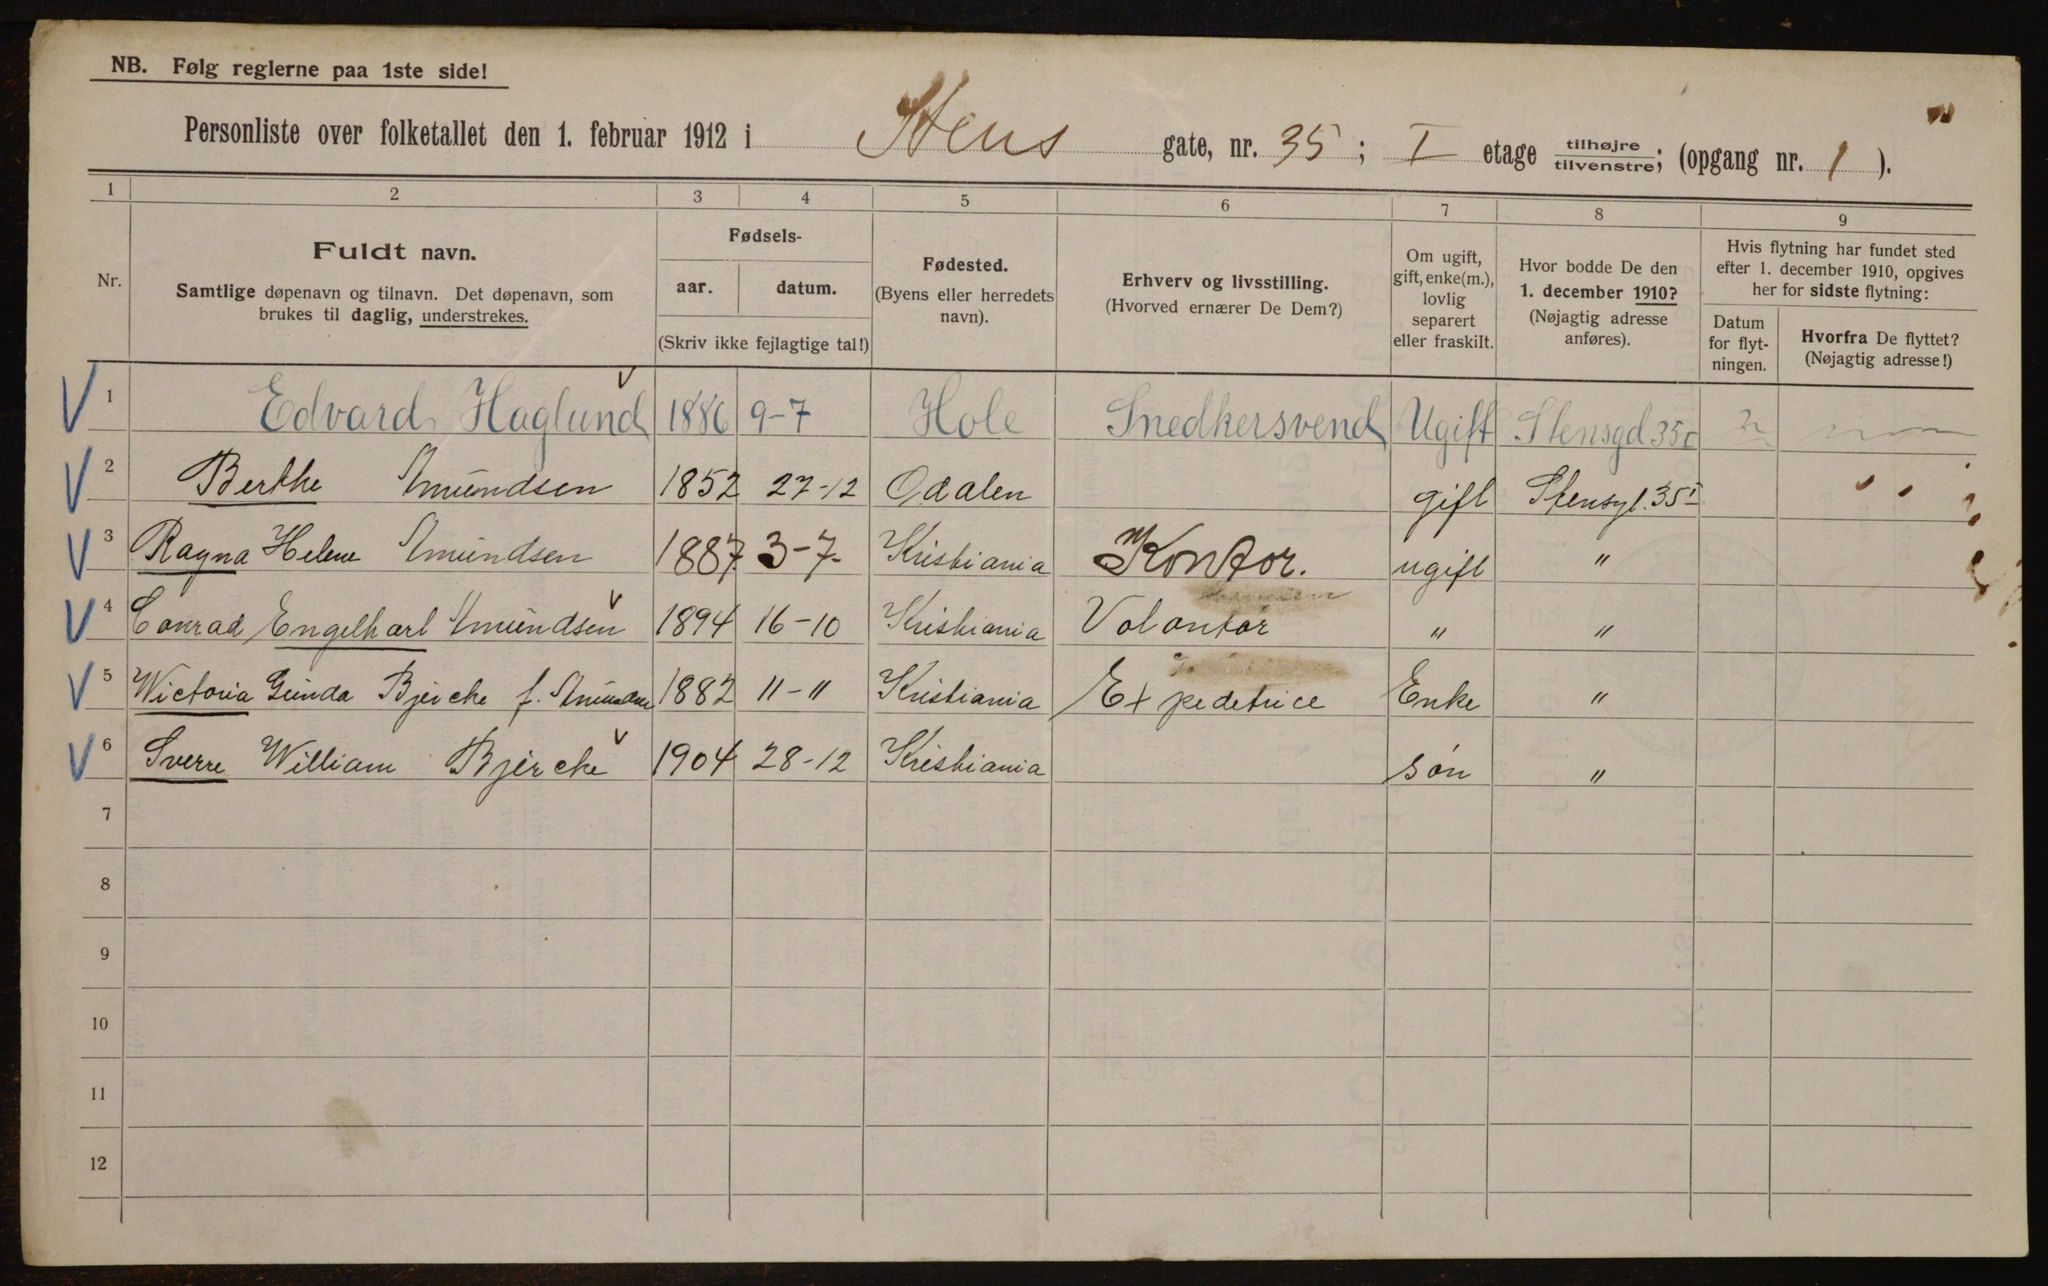 NB. Følg reglerne paa 1ste side!
Personliste over folketallet den 1. februar 1912 i Stens gate, nr. 35; I etage tilhøjre/tilvenstre; (opgang nr. 1).
1 2 3 4 5 6 7 8 9
Nr.
Fuldt navn.
Samtlige døpenavn og tilnavn. Det døpenavn, som
brukes til daglig, understrekes.
Fødsels-
aar. datum.
(Skriv ikke fejlagtige tal!)
Fødested.
(Byens eller herredets
navn).
Erhverv og livsstilling.
(Hvorved ernærer De Dem?)
Om ugift,
gift, enke(m.),
lovlig
separert
eller fraskilt.
Hvor bodde De den
1. december 1910?
(Nøjagtig adresse
anføres).
Hvis flytning har fundet sted
efter 1. december 1910, opgives
her for sidste flytning:
Datum
for flyt-
ningen.
Hvorfra De flyttet?
(Nøjagtig adresse!)
1 Edvard Haglund 1886 9-7 Hole Snedkersvend Ugift Stensgd 35
2 Berthe Amundsen 1852 27-12 Odalen gift Stensgt. 35 I
3 Ragna Helene Amundsen 1887 3-7- Kristiania Kontor. ugift "
4 Conrad Engelhart Amundsen 1894 16-10 Kristiania Volontør " "
5 Wictoria Gunda Bjercke f. Amundsen 1882 11-11 Kristiania Expedetrice Enke "
6 Sverre William Bjercke 1904 28-12 Kristiania søn "
7
8
9
10
11
12